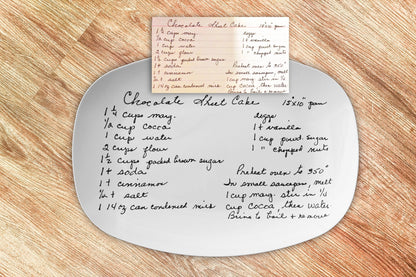 Chocolate Sheet Cake 15x10" pan
1 1/4 cups marg. eggs
1/2 cup cocoa 1 t vanilla
1 cup water 1 cup powd. sugar
2 cups flour 1 " chopped nuts
1 1/2 cups packed brown sugar
1 t soda Preheat oven to 350°
1 t cinnamon In small saucepan, melt
1/2 t salt 1 cup marg. stir in 1/4
1 14 oz can condensed milk cup cocoa then water
Bring to boil & remove
Chocolate Sheet Cake 15x10" pan
1 1/4 cups marg. eggs
1/2 cup cocoa 1 t vanilla
1 cup water 1 cup powd. sugar
2 cups flour 1 " chopped nuts
1 1/2 cups packed brown sugar
1 t soda Preheat oven to 350°
1 t cinnamon In small saucepan, melt
1/2 t salt 1 cup marg. stir in 1/4
1 14 oz can condensed milk cup cocoa then water
Bring to boil + remove